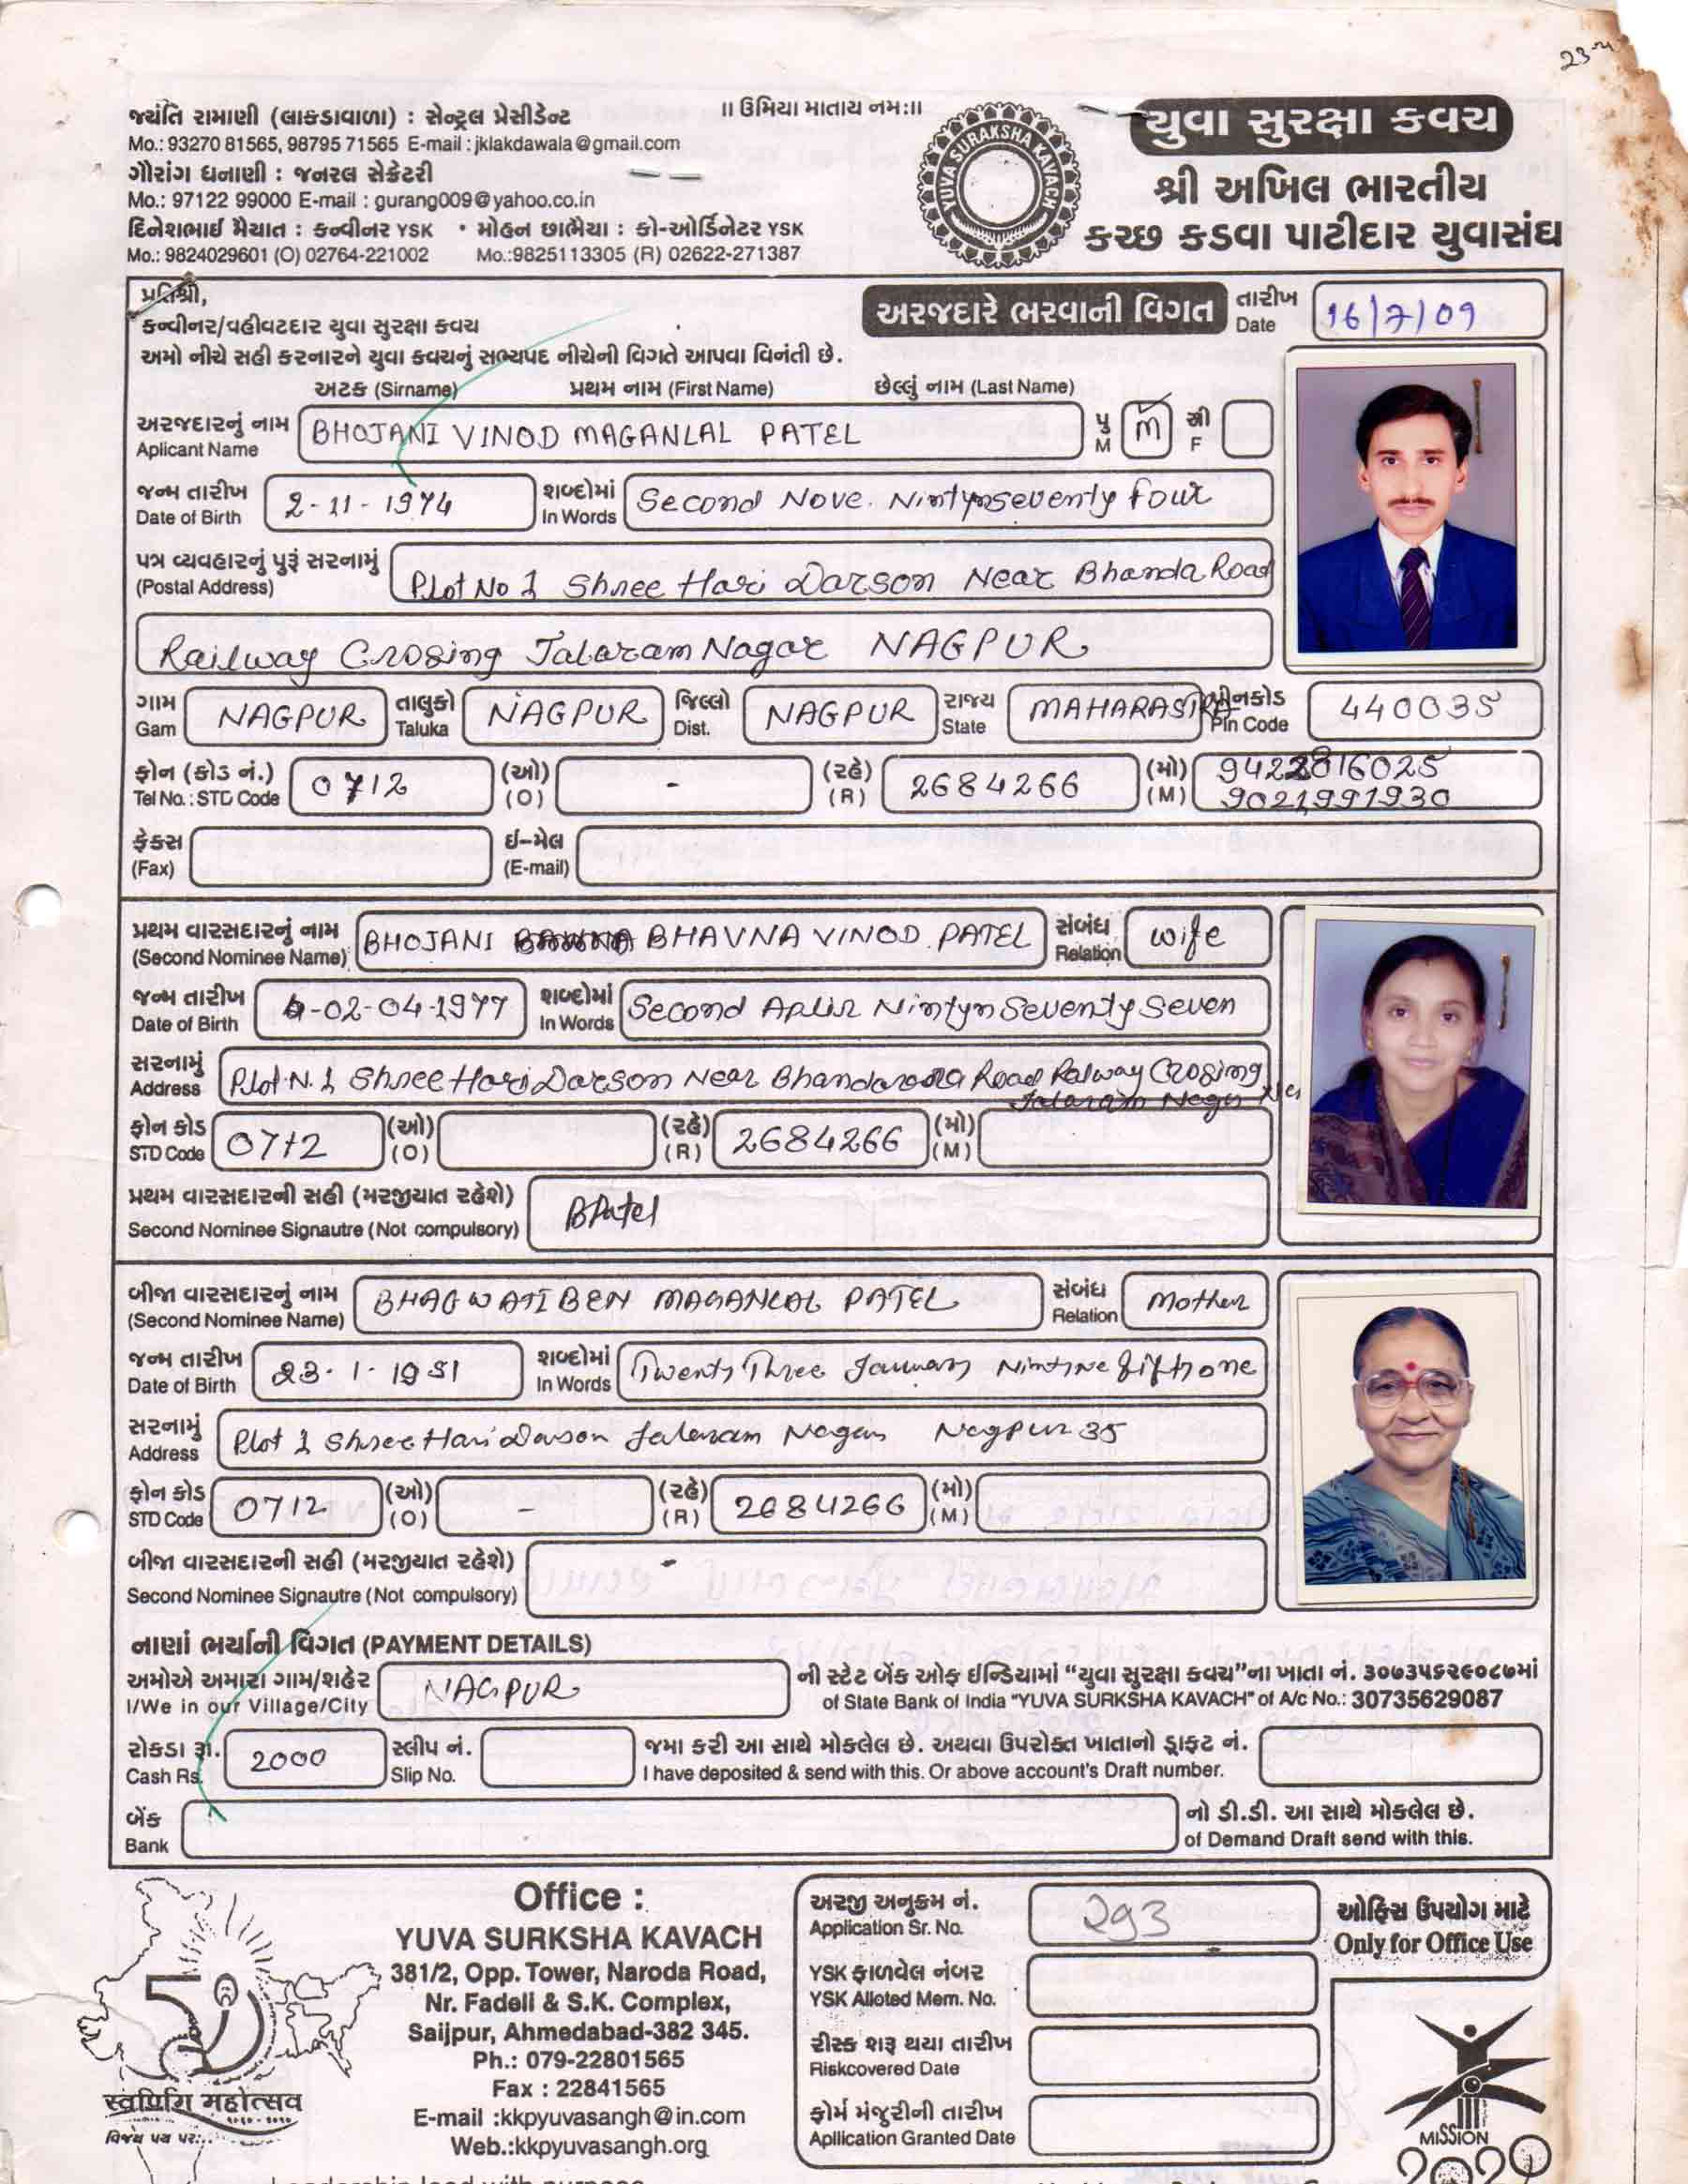 23-4
જયંતિ રામાણી (લાકડાવાળા) : સેન્ટ્રલ પ્રેસીડેન્ટ
Mo.: 93270 81565, 98795 71565 E-mail : jklakdawala@gmail.com
ગૌરાંગ ધનાણી : જનરલ સેક્રેટરી
Mo.: 97122 99000 E-mail : gurang009@yahoo.co.in
દિનેશભાઈ મૈયાત : કન્વીનર YSK • મોહન છાભૈયા : કો-ઓર્ડિનેટર YSK
Mo.: 9824029601 (O) 02764-221002 Mo.:9825113305 (R) 02622-271387
॥ ઉમિયા માતાય નમ:॥
YUVA SURAKSHA KAVACH
યુવા સુરક્ષા કવચ
શ્રી અખિલ ભારતીય
કચ્છ કડવા પાટીદાર યુવાસંઘ
પ્રતિશ્રી,
અરજદારે ભરવાની વિગત
તારીખ Date 16/7/09
કન્વીનર/વહીવટદાર યુવા સુરક્ષા કવચ
અમો નીચે સહી કરનારને યુવા કવચનું સભ્યપદ નીચેની વિગતે આપવા વિનંતી છે.
અટક (Sirname) પ્રથમ નામ (First Name) છેલ્લું નામ (Last Name)
અરજદારનું નામ Aplicant Name BHOJANI VINOD MAGANLAL PATEL પુ M m સ્ત્રી F
જન્મ તારીખ Date of Birth 2-11-1974 શબ્દોમાં In Words Second Nove. Nintynseventy four
પત્ર વ્યવહારનું પુરૂં સરનામું (Postal Address) Plot No 1 Shree Hari Darson Near Bhanda Road
Railway Crosing Jalaram Nagar NAGPUR
ગામ Gam NAGPUR તાલુકો Taluka NAGPUR જિલ્લો Dist. NAGPUR રાજ્ય State MAHARASTRA પીનકોડ Pin Code 440035
ફોન (કોડ નં.) Tel No. : STD Code 0712 (ઓ) (O) - (રહે) (R) 2684266 (મો) (M) 9422816025
9021991930
ફેક્સ (Fax) ઈ-મેલ (E-mail)
પ્રથમ વારસદારનું નામ (Second Nominee Name) BHOJANI BHAVNA VINOD PATEL સંબંધ Relation wife
જન્મ તારીખ Date of Birth 02-04-1977 શબ્દોમાં In Words Second Aplir Nintyn Seventy Seven
સરનામું Address Plot N. 1 Shree Hari Darson Near Road Ralway Crosing
Jalaram Nagar
ફોન કોડ STD Code 0712 (ઓ) (O) (રહે) (R) 2684266 (મો) (M)
પ્રથમ વારસદારની સહી (મરજીયાત રહેશે)
Second Nominee Signautre (Not compulsory) BPatel
બીજા વારસદારનું નામ (Second Nominee Name) BHAGWATIBEN MAGANLAL PATEL સંબંધ Relation Mother
જન્મ તારીખ Date of Birth 23-1-1951 શબ્દોમાં In Words Twenty Three January Nintine fifty one
સરનામું Address Plot 1 Shree Hari Darson Jalaram Nagar Nagpur 35
ફોન કોડ STD Code 0712 (ઓ) (O) - (રહે) (R) 2684266 (મો) (M)
બીજા વારસદારની સહી (મરજીયાત રહેશે) -
Second Nominee Signautre (Not compulsory)
નાણાં ભર્યાની વિગત (PAYMENT DETAILS)
અમોએ અમારા ગામ/શહેર NAGPUR ની સ્ટેટ બેંક ઓફ ઈન્ડિયામાં “યુવા સુરક્ષા કવચ”ના ખાતા નં. ૩૦૭૩૫૬૨૯૦૮૭માં
I/We in our Village/City of State Bank of India "YUVA SURKSHA KAVACH" of A/c No.: 30735629087
રોકડા રૂા. 2000 સ્લીપ નં. જમા કરી આ સાથે મોકલેલ છે. અથવા ઉપરોક્ત ખાતાનો ડ્રાફ્ટ નં.
Cash Rs. Slip No. I have deposited & send with this. Or above account's Draft number.
બેંક નો ડી.ડી. આ સાથે મોકલેલ છે.
Bank of Demand Draft send with this.
50
स्वर्णिम महोत्सव
વિજય પથ પર...
Office :
YUVA SURKSHA KAVACH
381/2, Opp. Tower, Naroda Road,
Nr. Fadeli & S.K. Complex,
Saijpur, Ahmedabad-382 345.
Ph.: 079-22801565
Fax : 22841565
E-mail :kkpyuvasangh@in.com
Web.:kkpyuvasangh.org
અરજી અનુક્રમ નં. 293
Application Sr. No.
YSK ફાળવેલ નંબર
YSK Alloted Mem. No.
રીસ્ક શરૂ થયા તારીખ
Riskcovered Date
ફોર્મ મંજુરીની તારીખ
Apllication Granted Date
ઓફિસ ઉપયોગ માટે
Only for Office Use
MISSION
2020